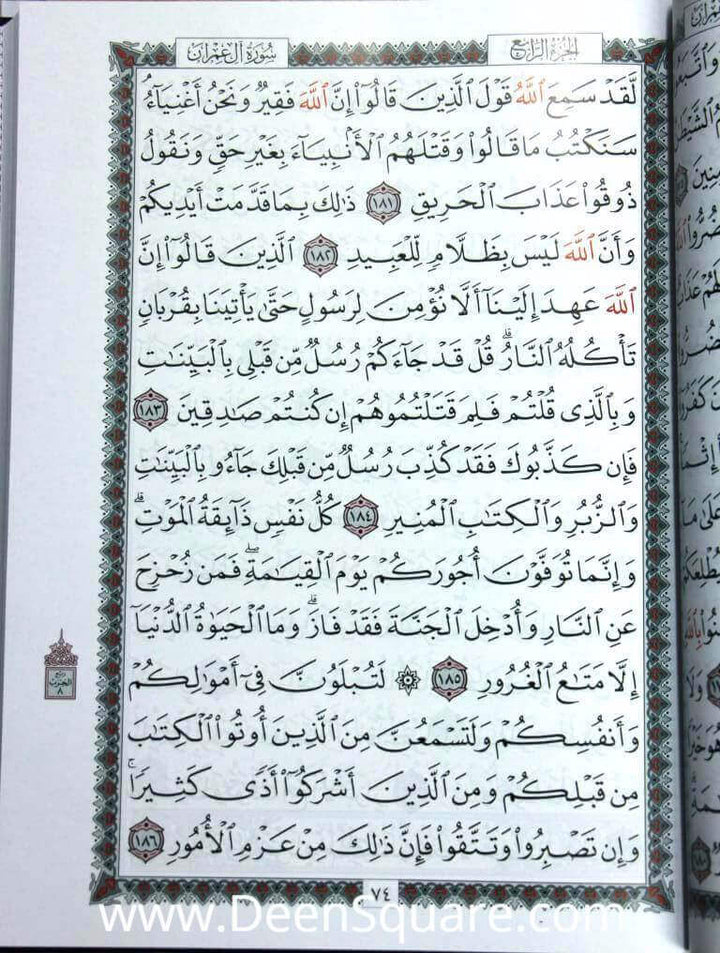 الجزء الرابع
سورة آل عمران
لَّقَدْ سَمِعَ ٱللَّهُ قَوْلَ ٱلَّذِينَ قَالُوٓا۟ إِنَّ ٱللَّهَ فَقِيرٌ وَنَحْنُ أَغْنِيَآءُ
سَنَكْتُبُ مَا قَالُوا۟ وَقَتْلَهُمُ ٱلْأَنۢبِيَآءَ بِغَيْرِ حَقٍّ وَنَقُولُ
ذُوقُوا۟ عَذَابَ ٱلْحَرِيقِ ١٨١ ذَٰلِكَ بِمَا قَدَّمَتْ أَيْدِيكُمْ
وَأَنَّ ٱللَّهَ لَيْسَ بِظَلَّامٍ لِّلْعَبِيدِ ١٨٢ ٱلَّذِينَ قَالُوٓا۟ إِنَّ
ٱللَّهَ عَهِدَ إِلَيْنَآ أَلَّا نُؤْمِنَ لِرَسُولٍ حَتَّىٰ يَأْتِيَنَا بِقُرْبَانٍ
تَأْكُلُهُ ٱلنَّارُ ۗ قُلْ قَدْ جَآءَكُمْ رُسُلٌ مِّن قَبْلِى بِٱلْبَيِّنَٰتِ
وَبِٱلَّذِى قُلْتُمْ فَلِمَ قَتَلْتُمُوهُمْ إِن كُنتُمْ صَٰدِقِينَ ١٨٣
فَإِن كَذَّبُوكَ فَقَدْ كُذِّبَ رُسُلٌ مِّن قَبْلِكَ جَآءُو بِٱلْبَيِّنَٰتِ
وَٱلزُّبُرِ وَٱلْكِتَٰبِ ٱلْمُنِيرِ ١٨٤ كُلُّ نَفْسٍ ذَآئِقَةُ ٱلْمَوْتِ ۗ
وَإِنَّمَا تُوَفَّوْنَ أُجُورَكُمْ يَوْمَ ٱلْقِيَٰمَةِ ۖ فَمَن زُحْزِحَ
عَنِ ٱلنَّارِ وَأُدْخِلَ ٱلْجَنَّةَ فَقَدْ فَازَ ۗ وَمَا ٱلْحَيَوٰةُ ٱلدُّنْيَآ
إِلَّا مَتَٰعُ ٱلْغُرُورِ ١٨٥ ۞ لَتُبْلَوُنَّ فِىٓ أَمْوَٰلِكُمْ
وَأَنفُسِكُمْ وَلَتَسْمَعُنَّ مِنَ ٱلَّذِينَ أُوتُوا۟ ٱلْكِتَٰبَ
مِن قَبْلِكُمْ وَمِنَ ٱلَّذِينَ أَشْرَكُوٓا۟ أَذًى كَثِيرًا ۚ
وَإِن تَصْبِرُوا۟ وَتَتَّقُوا۟ فَإِنَّ ذَٰلِكَ مِنْ عَزْمِ ٱلْأُمُورِ ١٨٦
٧٤
ربع
الحزب
٨
www.DeenSquare.com